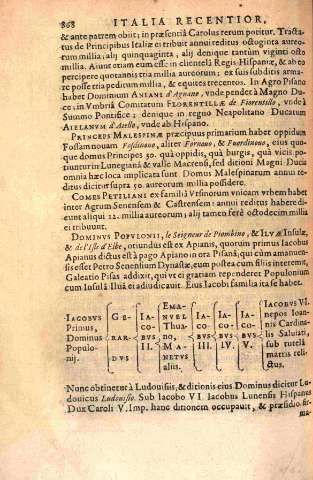 868 ITALIA RECENTIOR,
& ante patrem obiit; in præsentiâ Carolus rerum potitur. Tracta-
tus de Principibus Italiæ ei tribuit annui reditus octoginta aureo-
rum millia, alij quinquaginta, alij denique tantùm viginti octo
millia. Aiunt etiam eum esse in clientelâ Regis Hispaniæ, & ab eo
percipere quotannis tria millia aureorum; ex suis subditis arma-
re posse tria peditum millia, & equites trecentos. In Agro Pisano
habet Dominium ANIANI d'Agnano, vnde pendet à Magno Du-
ce, in Vmbriâ Comitatum FLORENTILLÆ de Fiorentillo, vnde à
Summo Pontifice; denique in regno Neapolitano Ducatum
AIELANVM d'Aiello, vnde ab Hispano.
PRINCEPS MALESPINÆ præcipuus primarium habet oppidum
Fossam nouam Fosdinouo, aliter Fornouo, & Fuordinouo, eius quo-
que domus Principes 30. quà oppidis, quà burgis, quà vicis, po-
tiuntur in Lunegianâ & valle Macrensi, sed ditioni Magni Ducis
omnia hæc loca implicata sunt. Domus Malespinarum annui re-
ditus dicitur supra 50. aureorum millia possidere.
COMES PETILIANI ex familiâ Vrsinorum vnicam vrbem habet
inter Agrum Senensem & Castrensem: annui reditus habere di-
cunt aliqui 12. millia aureorum; alij tamen ferè octodecim millia
ei tribuunt.
DOMINVS POPVLONII, le Seigneur de Piombino, & ILVÆ Insulæ,
& de l'Isle d'Elbe, oriundus est ex Apianis, quorum primus Iacobus
Apianus dictus est à pago Apiano in ora Pisanâ, qui cùm amanuen-
sis esset Petro Senensium Dynastæ, eum postea cum filiis interemit,
Galeatio Pisas addixit, qui ve ei gratiam rependeret Populonium
cum Insulâ Iluâ ei adiudicauit. Eius Iacobi familia ita se habet.
IACOBVS Primus, Dominus Populonij.
GERARDVS
IACOBVS II.
EMANVEL Thuano, MANETVS aliis.
IACOBVS III.
IACOBVS IV.
IACOBVS V.
IACOBVS VI. nepos Ioannis Cardinalis Saluiati, sub tutelâ matris relictus.
Nunc obtinetur à Ludouisiis, & ditionis eius Dominus dicitur Ludouicus Ludouisio. Sub Iacobo VI. Iacobus Lunensis Hispanus
Dux Caroli V. Imp. hanc ditionem occupauit, & præsidio fir-
ma-